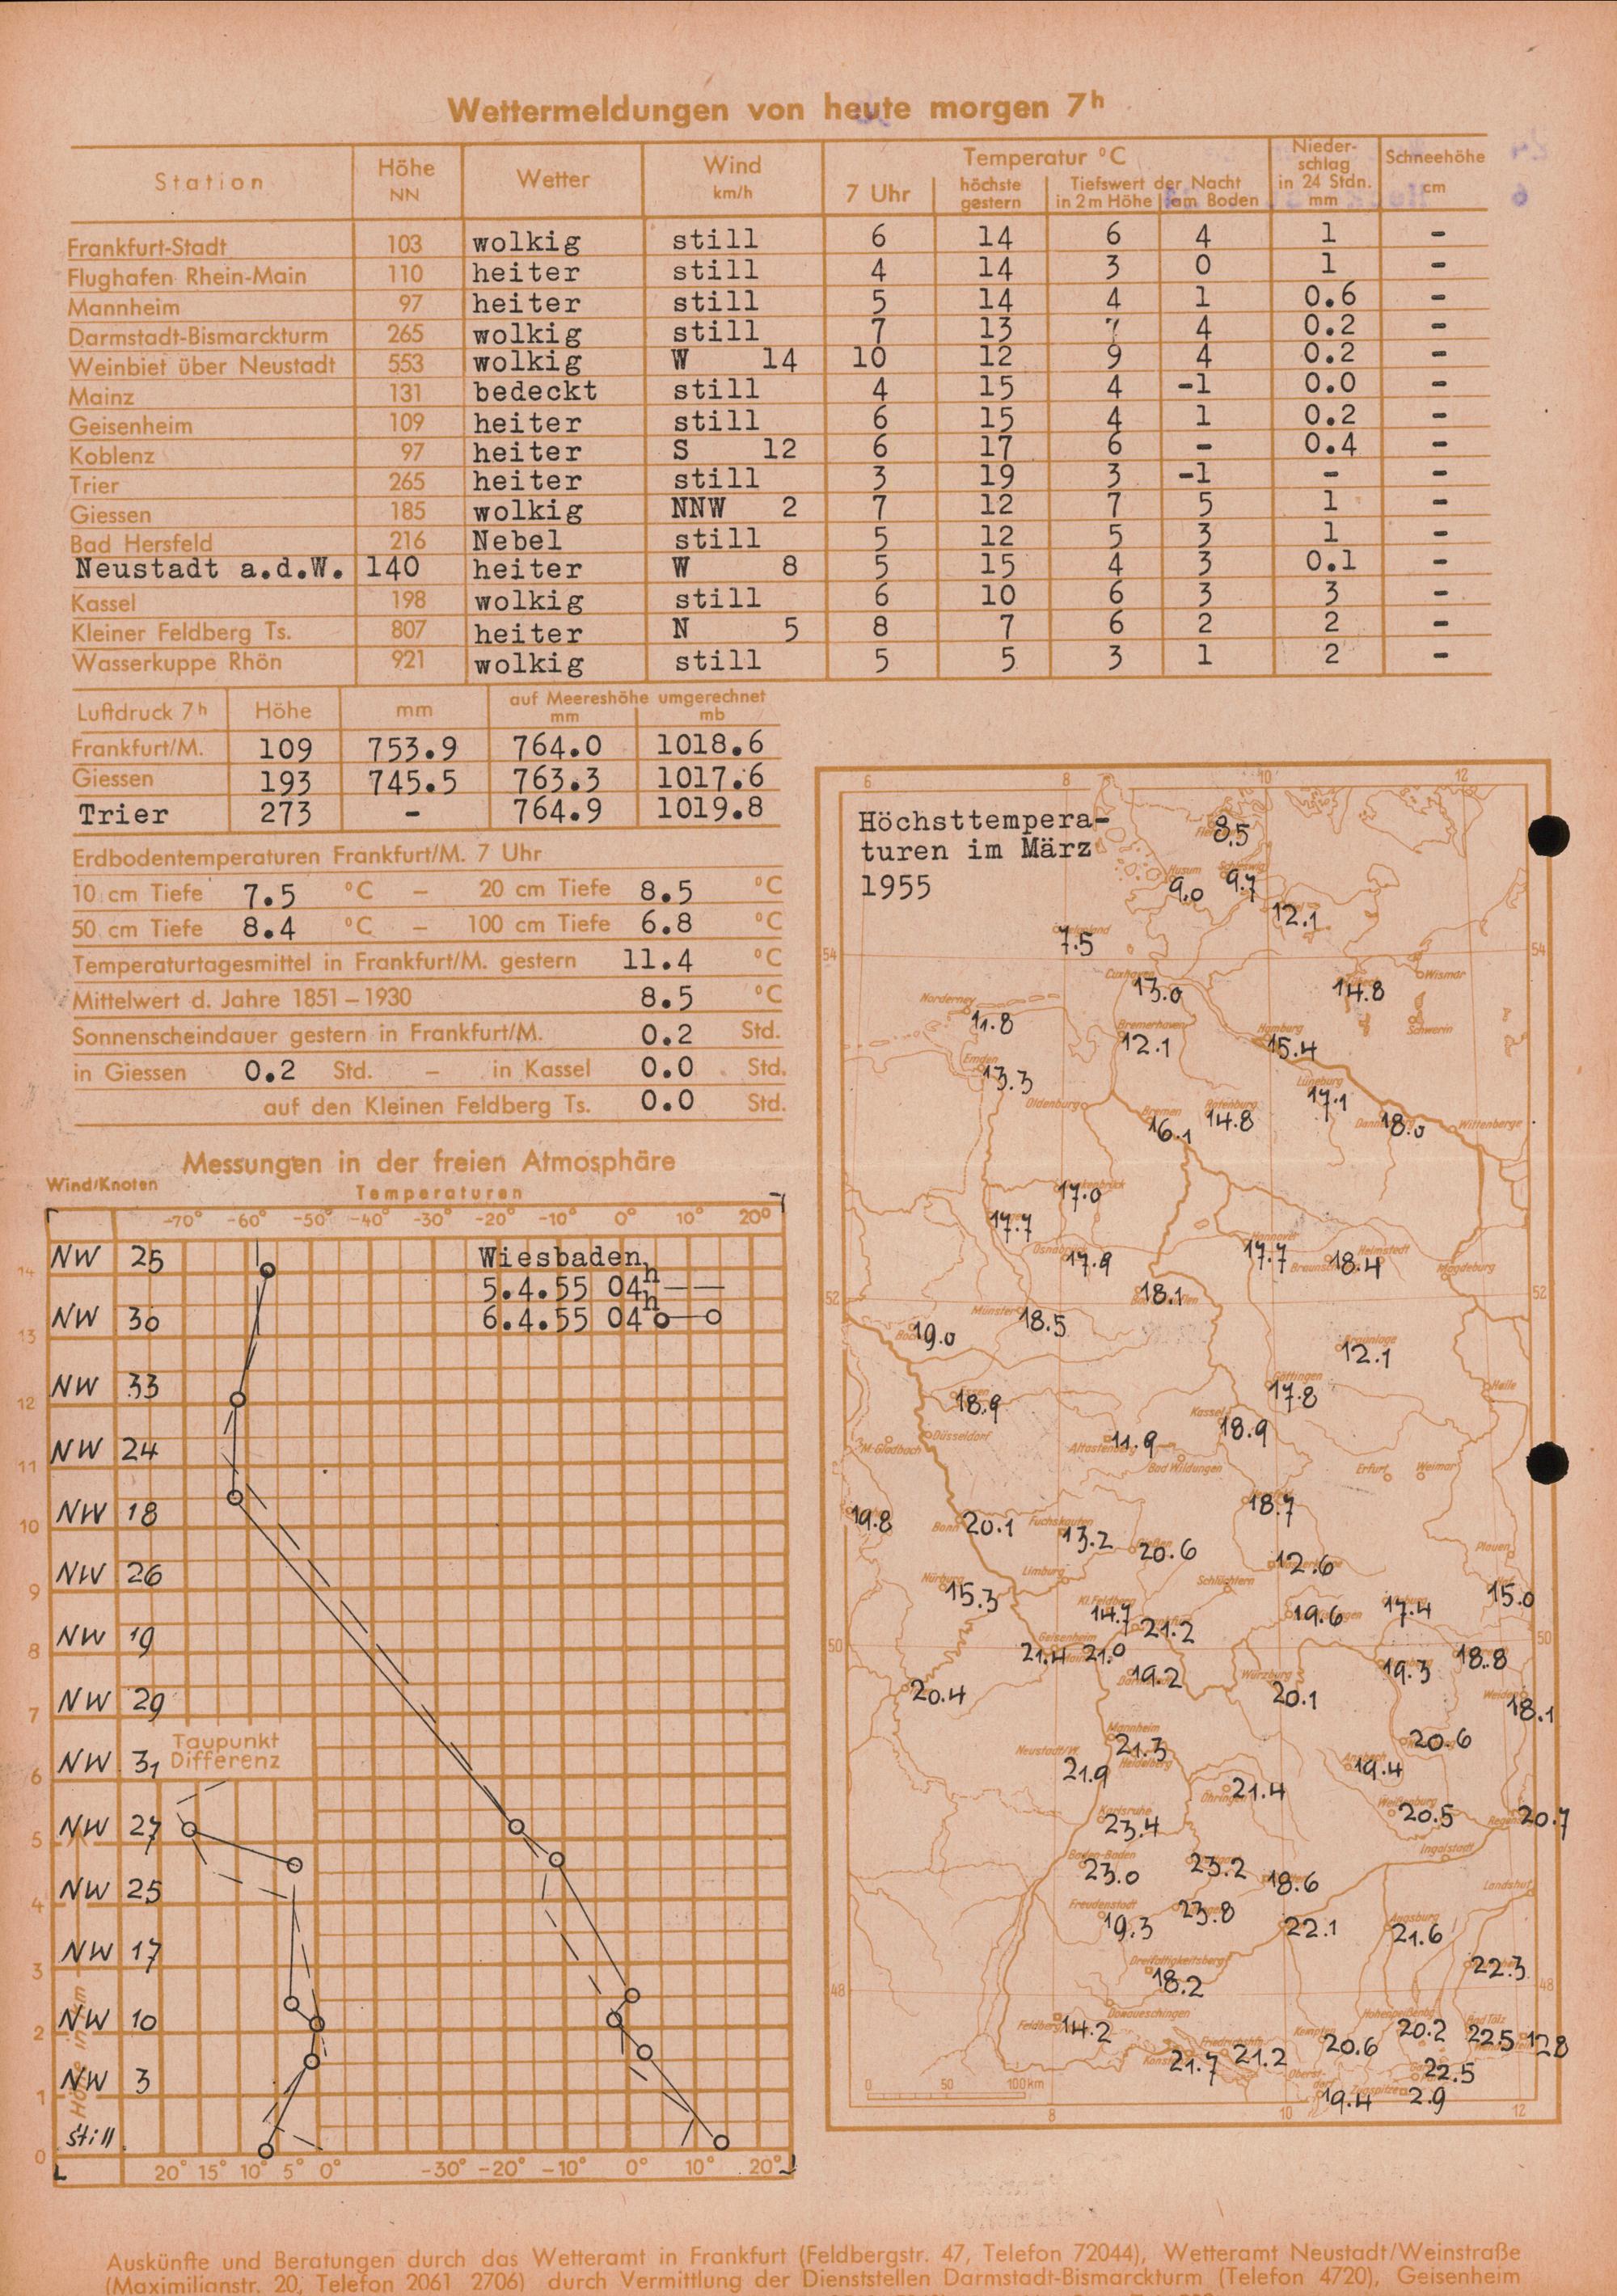 Wettermeldungen von heute morgen 7h
Station Höhe NN Wetter Wind km/h Temperatur °C Nieder-schlag in 24 Stdn. mm Schneehöhe cm
7 Uhr höchste gestern Tiefswert der Nacht in 2m Höhe am Boden
Frankfurt-Stadt 103 wolkig still 6 14 6 4 1 -
Flughafen Rhein-Main 110 heiter still 4 14 3 0 1 -
Mannheim 97 heiter still 5 14 4 1 0.6 -
Darmstadt-Bismarckturm 265 wolkig still 7 13 7 4 0.2 -
Weinbiet über Neustadt 553 wolkig W 14 10 12 9 4 0.2 -
Mainz 131 bedeckt still 4 15 4 -1 0.0 -
Geisenheim 109 heiter still 6 15 4 1 0.2 -
Koblenz 97 heiter S 12 6 17 6 - 0.4 -
Trier 265 heiter still 3 19 3 -1 - -
Giessen 185 wolkig NNW 2 7 12 7 5 1 -
Bad Hersfeld 216 Nebel still 5 12 5 3 1 -
Neustadt a.d.W. 140 heiter W 8 5 15 4 3 0.1 -
Kassel 198 wolkig still 6 10 6 3 3 -
Kleiner Feldberg Ts. 807 heiter N 5 8 7 6 2 2 -
Wasserkuppe Rhön 921 wolkig still 5 5 3 1 2 -
Luftdruck 7h Höhe mm auf Meereshöhe umgerechnet mm mb
Frankfurt/M. 109 753.9 764.0 1018.6
Giessen 193 745.5 763.3 1017.6
Trier 273 - 764.9 1019.8
Erdbodentemperaturen Frankfurt/M. 7 Uhr
10 cm Tiefe 7.5 °C – 20 cm Tiefe 8.5 °C
50 cm Tiefe 8.4 °C – 100 cm Tiefe 6.8 °C
Temperaturtagesmittel in Frankfurt/M. gestern 11.4 °C
Mittelwert d. Jahre 1851–1930 8.5 °C
Sonnenscheindauer gestern in Frankfurt/M. 0.2 Std.
in Giessen 0.2 Std. – in Kassel 0.0 Std.
auf den Kleinen Feldberg Ts. 0.0 Std.
Messungen in der freien Atmosphäre
Wind/Knoten
Temperaturen
-70° -60° -50° -40° -30° -20° -10° 0° 10° 20°
Wiesbaden
5.4.55 04h
6.4.55 04h
NW 25
14
NW 30
13
NW 33
12
NW 24
11
NW 18
10
NW 26
9
NW 19
8
NW 29
7
Taupunkt
Differenz
NW 31
6
NW 27
5
NW 25
4
NW 17
3
NW 10
2
NW 3
1
still
0
Höhe in km
20° 15° 10° 5° 0° -30° -20° -10° 0° 10° 20°
6 8 10 12
Höchsttempera-
turen im März
1955
8.5
Husum 9.0 9.7
12.1
7.5
54 54
Cuxhaven 13.0 14.8 Wismar
Norderney 11.8 Schwerin
Bremerhaven 12.1 Hamburg 15.4
Emden 13.3
Lüneburg 17.1
Oldenburg Bremen 16.1 Rotenburg 14.8 18.0 Wittenberge
17.0
17.7
17.9 Hannover 17.7 18.4 Helmstedt Magdeburg
52 18.1 52
Münster 18.5
19.0
Braunlage 12.1
18.9 Göttingen 17.8 Halle
Kassel 18.9
M.Gladbach Düsseldorf 11.9 Bad Wildungen Erfurt Weimar
18.7
19.8 Bonn 20.1 Fuchskauten 13.2 20.6
12.6 Plauen
Limburg Schlüchtern
15.3 Kl.Feldberg 14.7 19.6 17.4 15.0
21.2
50 Geisenheim 21.4 21.0 50
19.2 Würzburg 20.1 19.3 18.8
20.4 18.1
Mannheim 21.3 20.6
Neustadt/W. 21.9 Heidelberg Ansbach 19.4
Öhringen 21.4
Karlsruhe 23.4 Weißenburg 20.5 20.7
Ingolstadt
Baden-Baden 23.0 23.2 18.6
Landshut
Freudenstadt 19.3 23.8 22.1 Augsburg 21.6
Dreifaltigkeitsberg 18.2 22.3
48 48
Donaueschingen
Feldberg 14.2 Kempten 20.6 Hohenpeißenbg 20.2 Bad Tölz 22.5 12.8
21.7 21.2 22.5
19.4 Zugspitze 2.9
0 50 100 km
8 10 12
Auskünfte und Beratungen durch das Wetteramt in Frankfurt (Feldbergstr. 47, Telefon 72044), Wetteramt Neustadt/Weinstraße
(Maximilianstr. 20, Telefon 2061 2706) durch Vermittlung der Dienststellen Darmstadt-Bismarckturm (Telefon 4720), Geisenheim